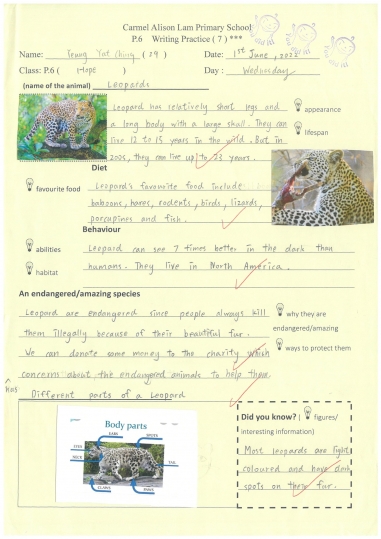 Carmel Alison Lam Primary School
P.6 Writing Practice ( 7 ) ***
Name: Yeung Yat Ching ( 29 ) Date: 1st June, 2022
Class: P.6 ( Hope ) Day : Wednesday
(name of the animal) Leopards
Leopard has relatively short legs and
a long body with a large skull. They can
live 12 to 15 years in the wild. But in
zoos, they can live up to 23 years.
appearance
lifespan
Diet
favourite food
Leopard's favourite food include
baboons, hares, rodents, birds, lizards,
porcupines and fish.
Behaviour
abilities
habitat
Leopard can see 7 times better in the dark than
humans. They live in North America.
An endangered/amazing species
Leopard are endangered since people always kill
them illegally because of their beautiful fur.
We can donate some money to the charity which
concerns about the endangered animals to help them.
why they are
endangered/amazing
ways to protect them
has
Different parts of a Leopard
Body parts
EARS
EYES
NECK
TAIL
CLAWS
PAWS
Did you know? ( figures/
interesting information)
Most leopards are light
coloured and have dark
spots on their fur.